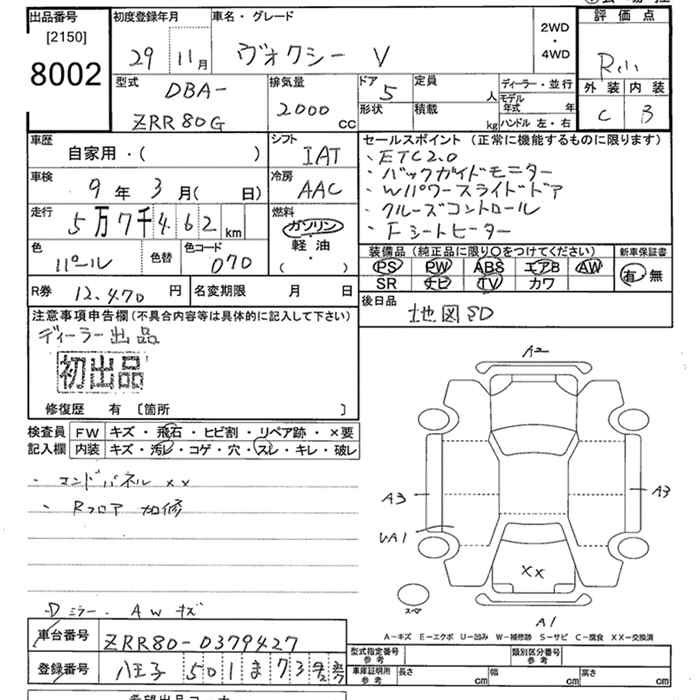 出品番号
[2150]
8002
初度登録年月
29 11月
車名・グレード
ヴォクシー V
2WD
・
4WD
評価点
R
外装 内装
C B
型式
DBA-
ZRR80G
排気量
2000 cc
ドア 5
形状
定員 人
積載 kg
ディーラー・並行
モデル年式 年
ハンドル 左・右
車歴
自家用・( )
シフト
IAT
車検
9年 3月( 日)
冷房
AAC
走行
5万7千462 km
燃料
ガソリン
・
軽油
( )
色
パール
色替
色コード
070
R券 12,470 円
名変期限 月 日
セールスポイント (正常に機能するものに限ります)
・ETC2.0
・バックガイドモニター
・Wパワースライドドア
・クルーズコントロール
・Fシートヒーター
装備品 (純正品に限り〇をつけてください)
PS PW ABS エアB AW
SR ナビ TV カワ
新車保証書
有・無
後日品
地図SD
注意事項申告欄(不具合内容等は具体的に記入して下さい)
ディーラー出品
初出品
修復歴 有 [箇所 ]
検査員
記入欄
FW キズ・飛石・ヒビ割・リペア跡・×要
内装 キズ・汚レ・コゲ・穴・スレ・キレ・破レ
・エンドパネル xx
・Rフロア 加修
Dミラー・AWキズ
A2
A3
A3
UA1
XX
スペア
A1
A-キズ E-エクボ U-凹み W-補修跡 S-サビ C-腐食 XX-交換済
車台番号 ZRR80-0379427
登録番号 八王子 501ま73
型式指定番号
参考
類別区分番号
参考
車庫証明用
参考
長さ cm
幅 cm
高さ cm